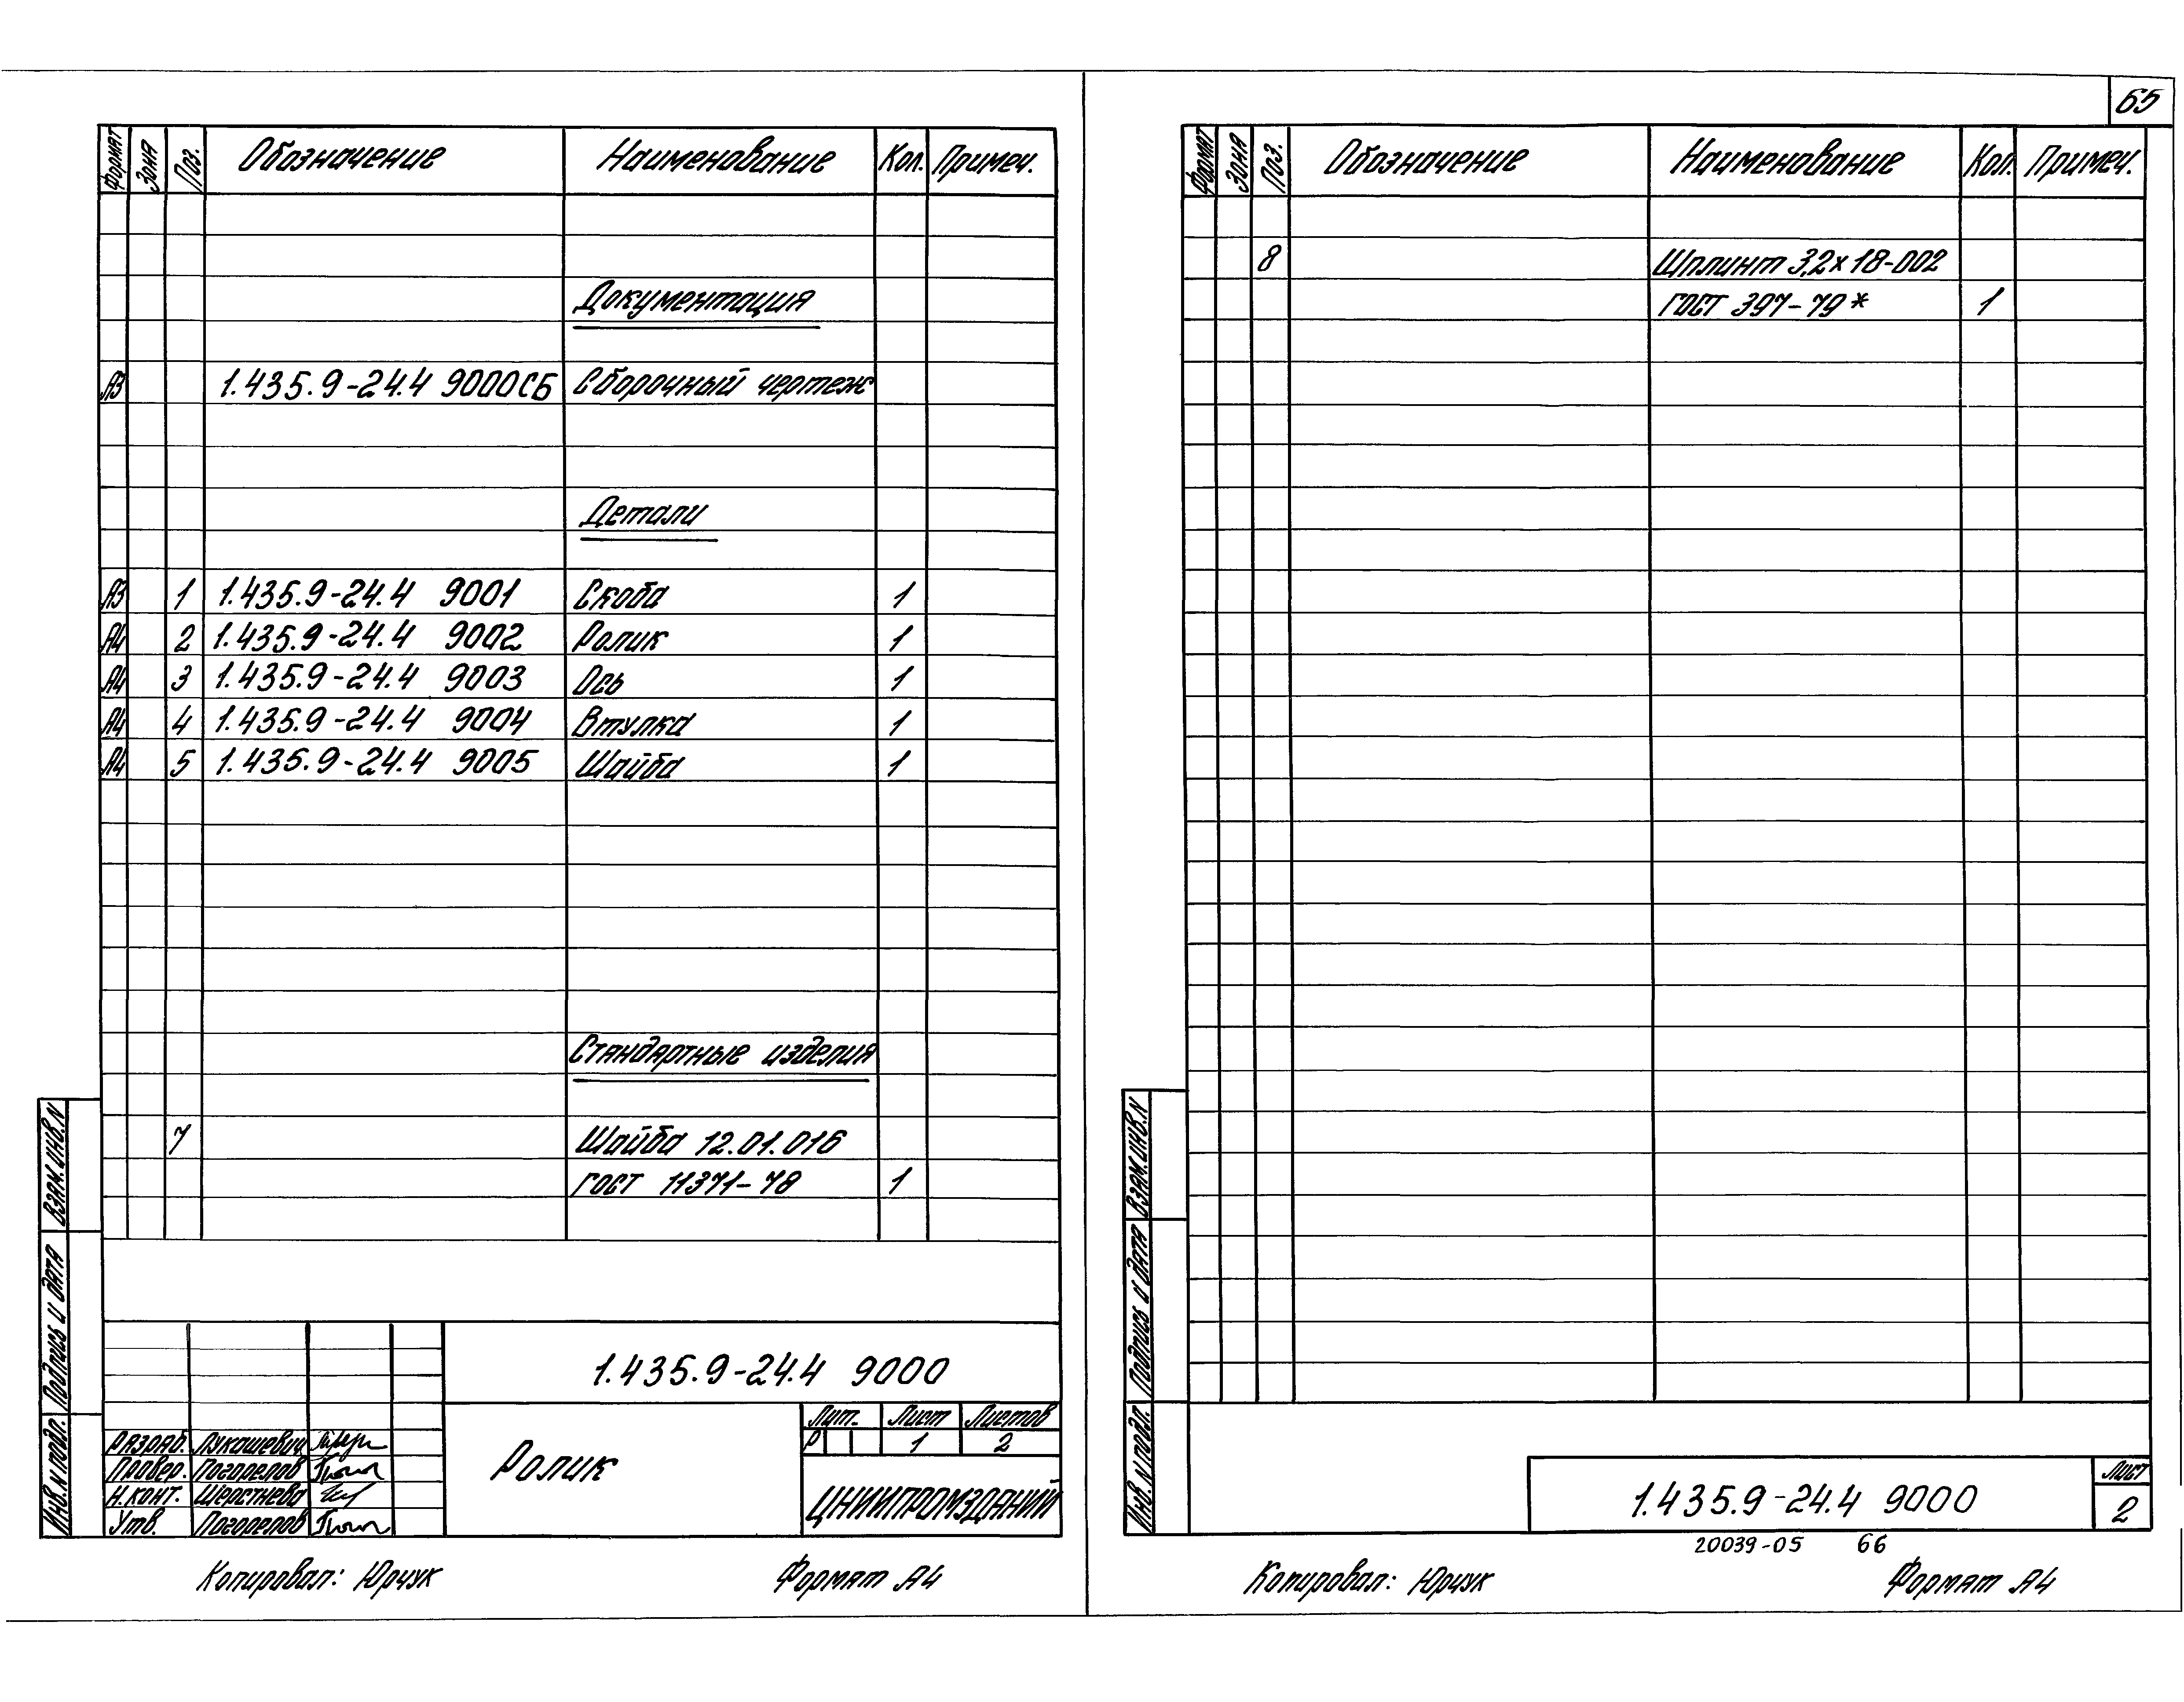 65
Формат Зона Поз. Обозначение Наименование Кол. Примеч.
Документация
А3 1.435.9-24.4 9000СБ Сборочный чертеж
Детали
А3 1 1.435.9-24.4 9001 Скоба 1
А4 2 1.435.9-24.4 9002 Ролик 1
А4 3 1.435.9-24.4 9003 Ось 1
А4 4 1.435.9-24.4 9004 Втулка 1
А4 5 1.435.9-24.4 9005 Шайба 1
Стандартные изделия
7 Шайба 12.01.016
ГОСТ 11371-78 1
Взам.инв.N
Подпись и дата
Инв.N подл.
1.435.9-24.4 9000
Разраб. Лукашевич
Провер. Погорелов
Н.конт. Шерстнева
Утв. Погорелов
Ролик
Лит. Лист Листов
Р 1 2
ЦНИИПРОМЗДАНИЙ
Копировал: Юрчук Формат А4
Формат Зона Поз. Обозначение Наименование Кол. Примеч.
8 Шплинт 3,2×18-002
ГОСТ 397-79* 1
Взам.инв.N
Подпись и дата
Инв.N подл.
1.435.9-24.4 9000
Лист
2
20039-05 66
Копировал: Юрчук Формат А4